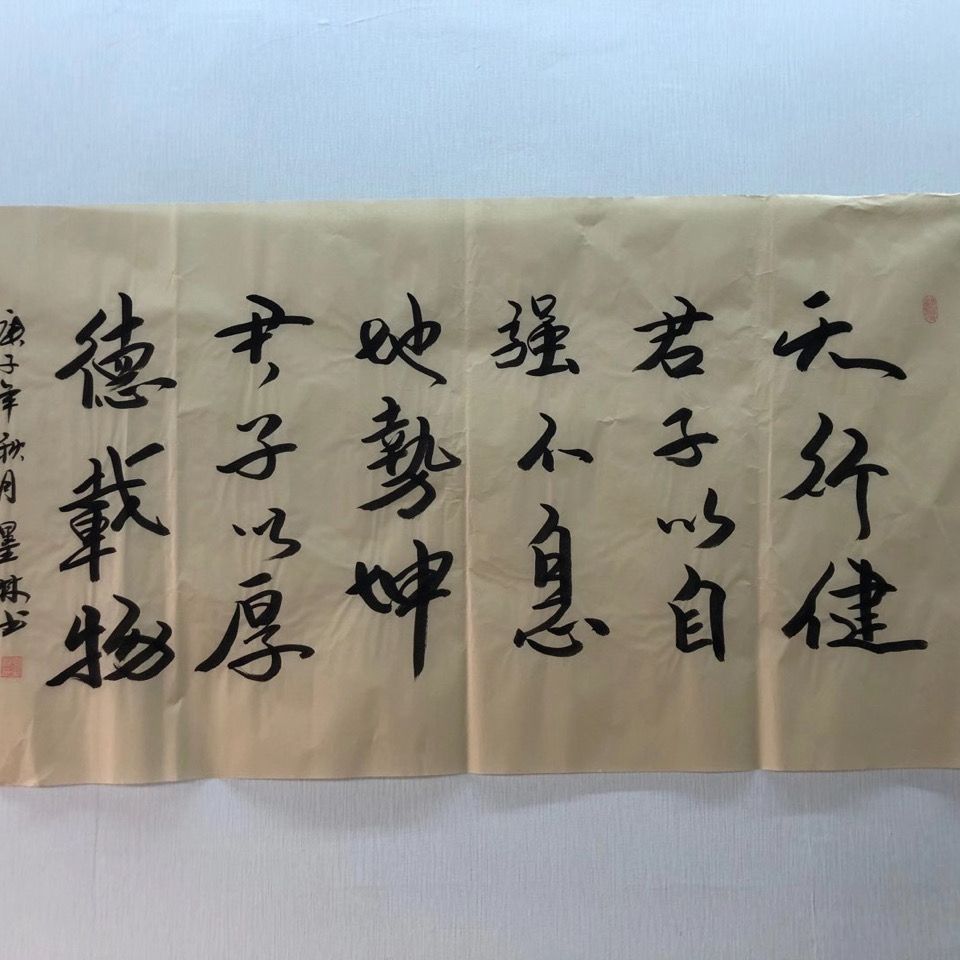 天行健
君子以自
强不息
地勢坤
君子以厚
德載物
庚子年秋月墨林书